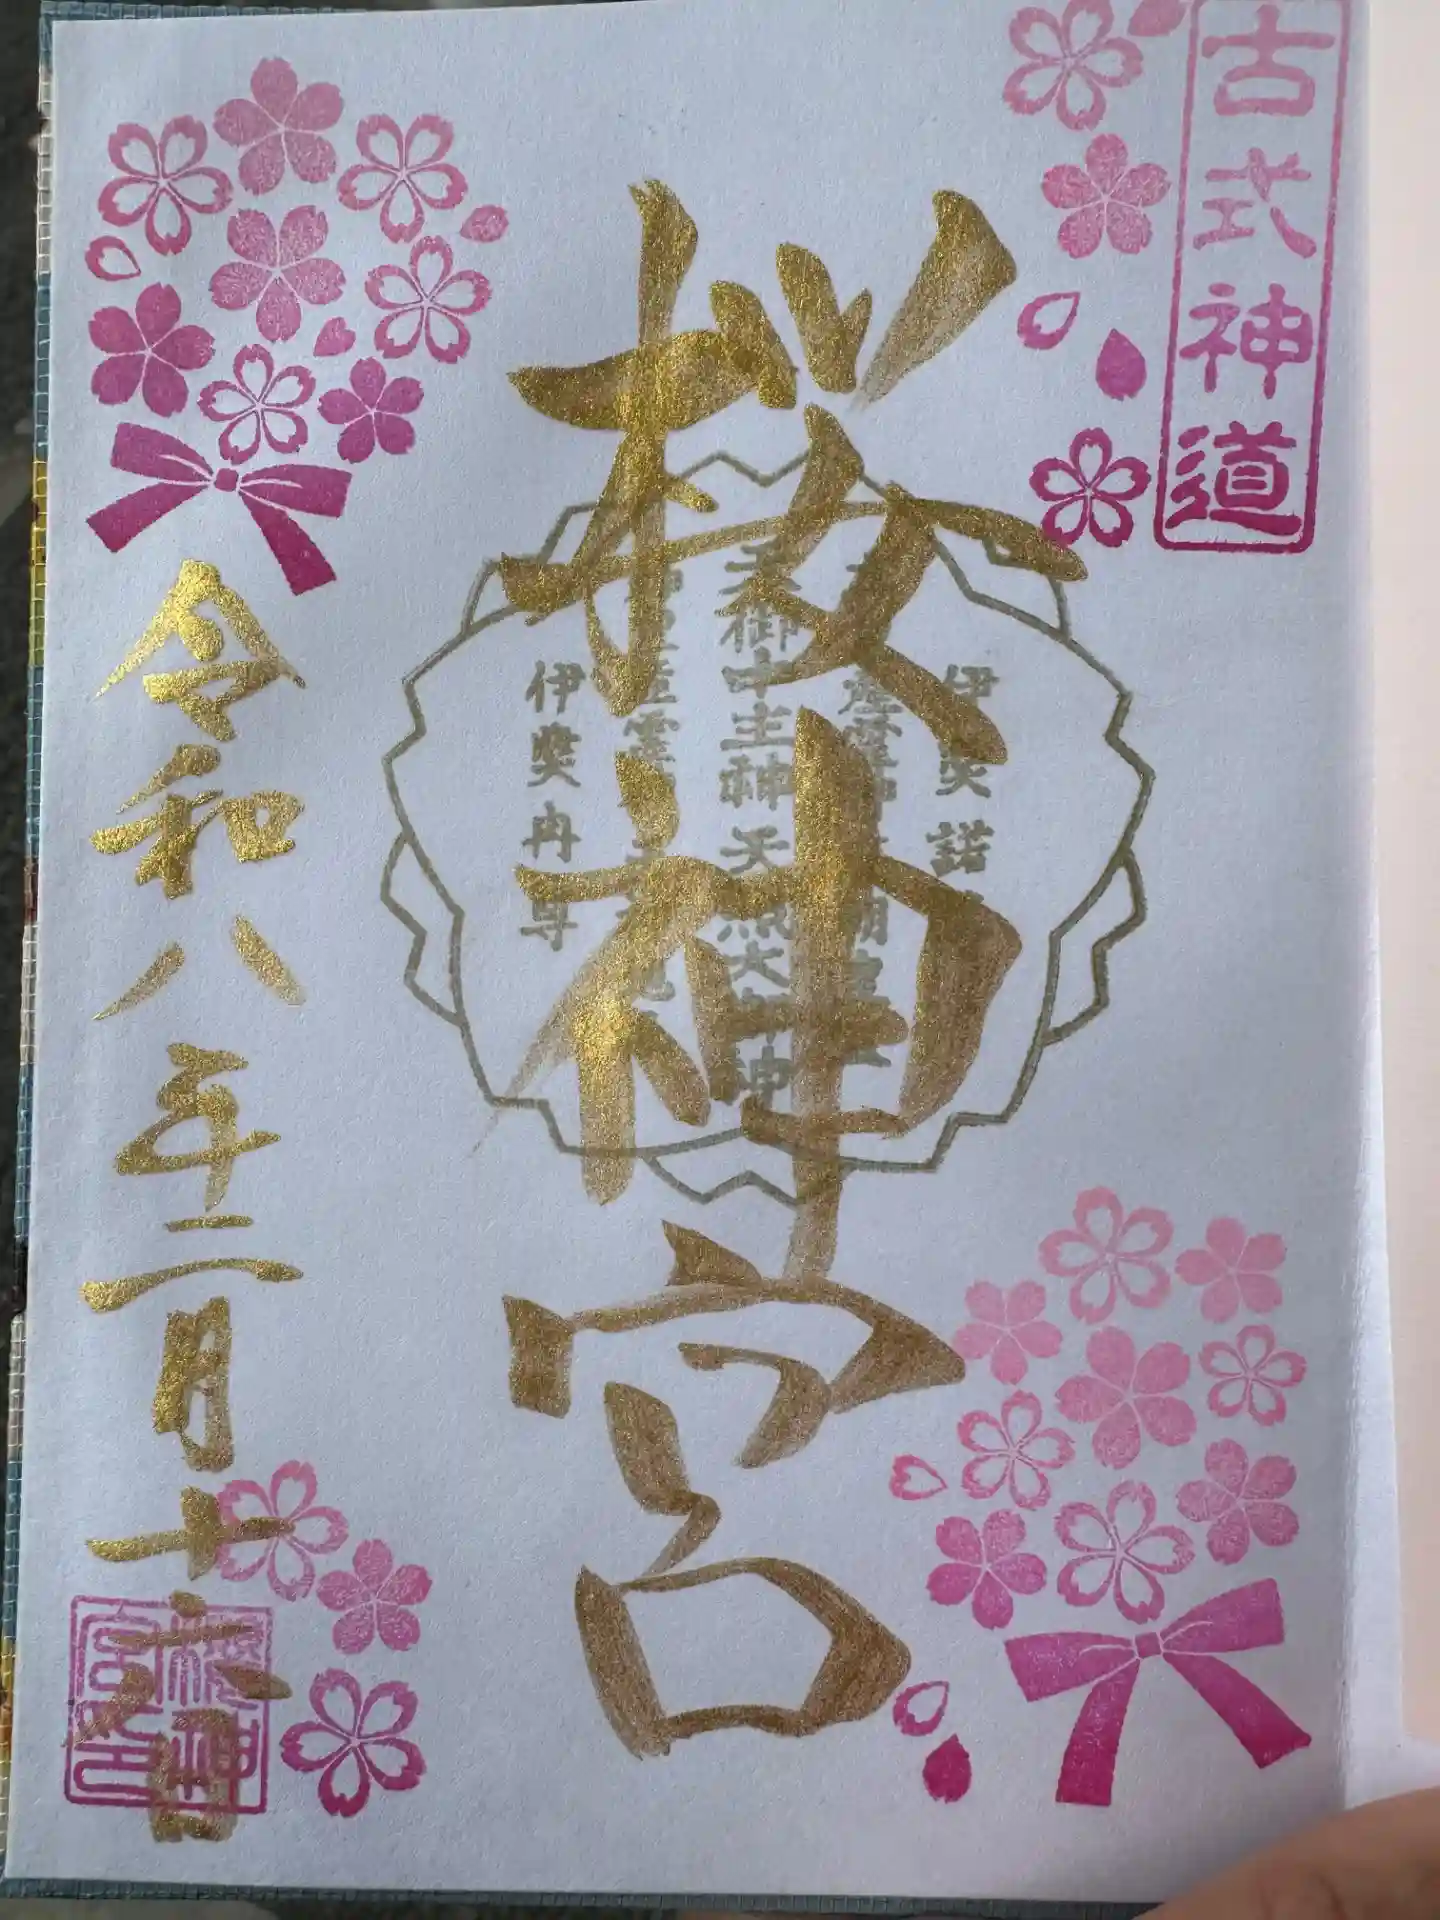 古式神道
桜神宮
伊奘諾
天御中主神 天照大御神
伊奘冉尊
令和八年二月十六日
櫻神
宮印